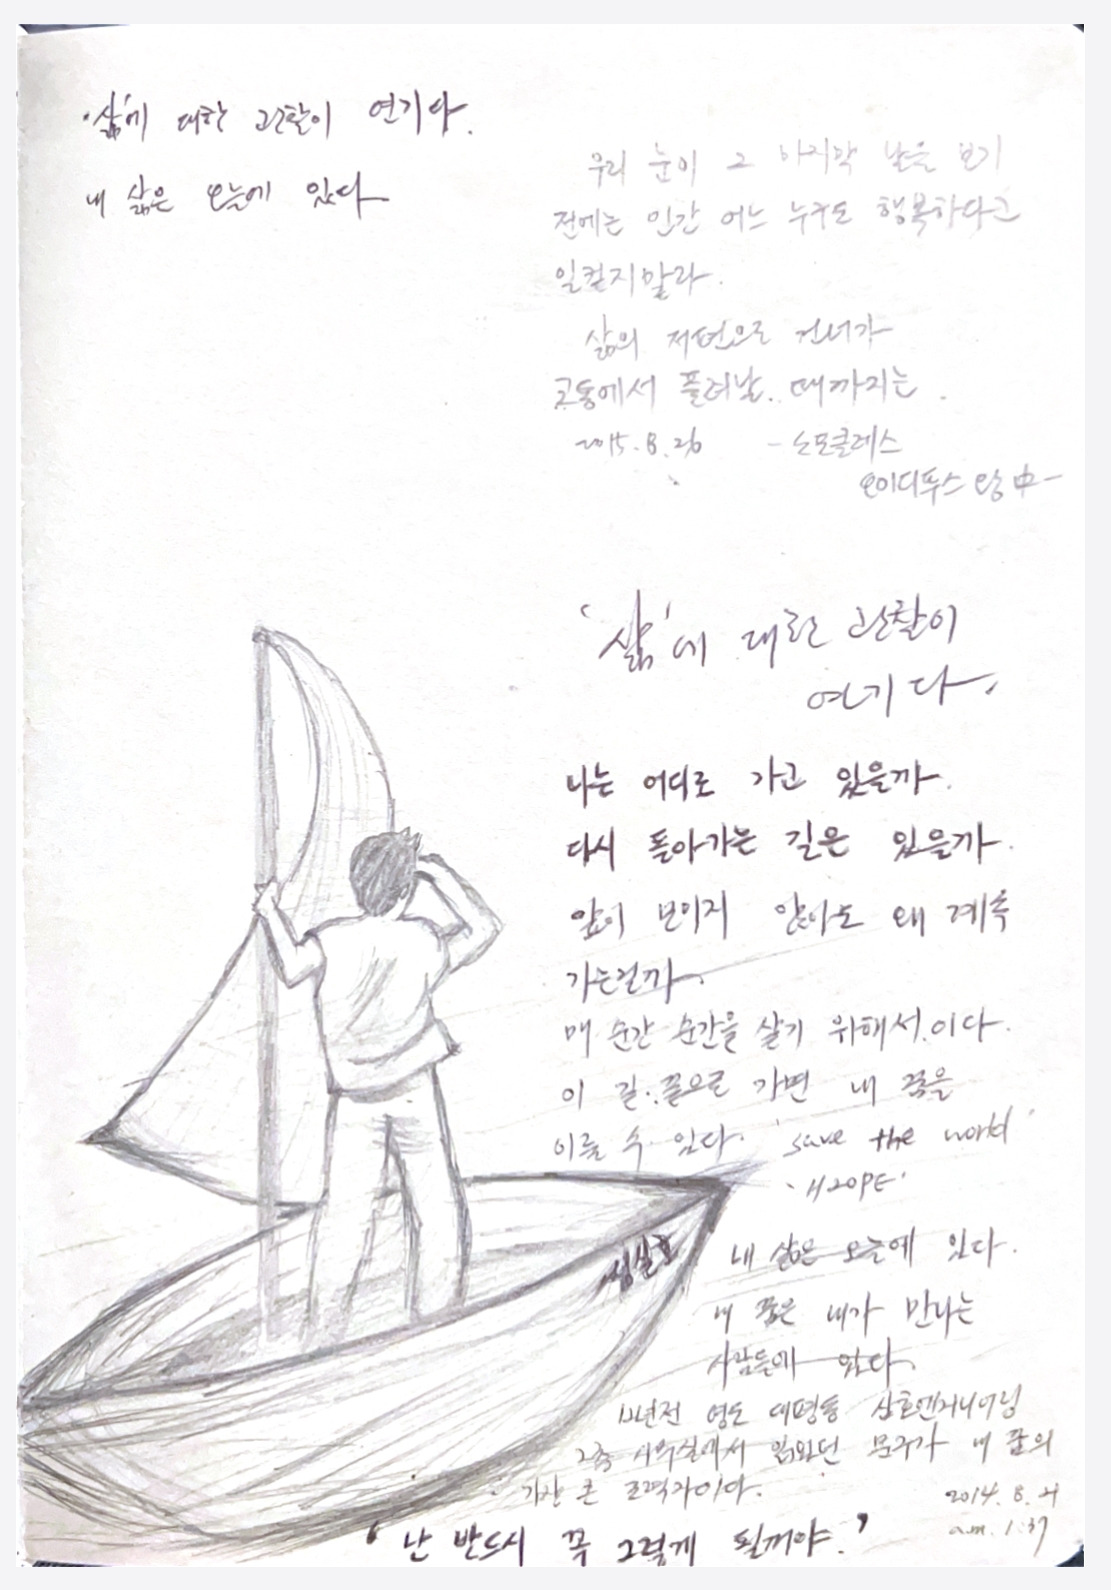 '삶'에 대한 관찰이 연기다.
내 삶은 오늘에 있다
우리 눈이 그 마지막 날을 보기
전에는 인간 어느 누구도 행복하다고
일컫지말라.
삶의 저편으로 건너가
고통에서 풀려날. 때까지는.
2015.8.26 - 소포클레스
오이디푸스 왕 中-
'삶'에 대한 관찰이
연기다.
나는 어디로 가고 있을까.
다시 돌아가는 길은 있을까.
앞이 보이지 않아도 왜 계속
가는걸까.
매 순간 순간을 살기 위해서.이다.
이 길.끝으로 가면 내 꿈을
이룰 수 있다. 'save the world'
'H2OPE'
내 삶은 오늘에 있다.
내 꿈은 내가 만나는
사람들에 있다.
년전 영도 대평동 삼호엔지니어링
2층 사무실에서 읽었던 문구가 내 꿈의
가장 큰 조력자이다.
2014. 8. 21
a.m. 1:37
'난 반드시 꼭 그렇게 될꺼야.'